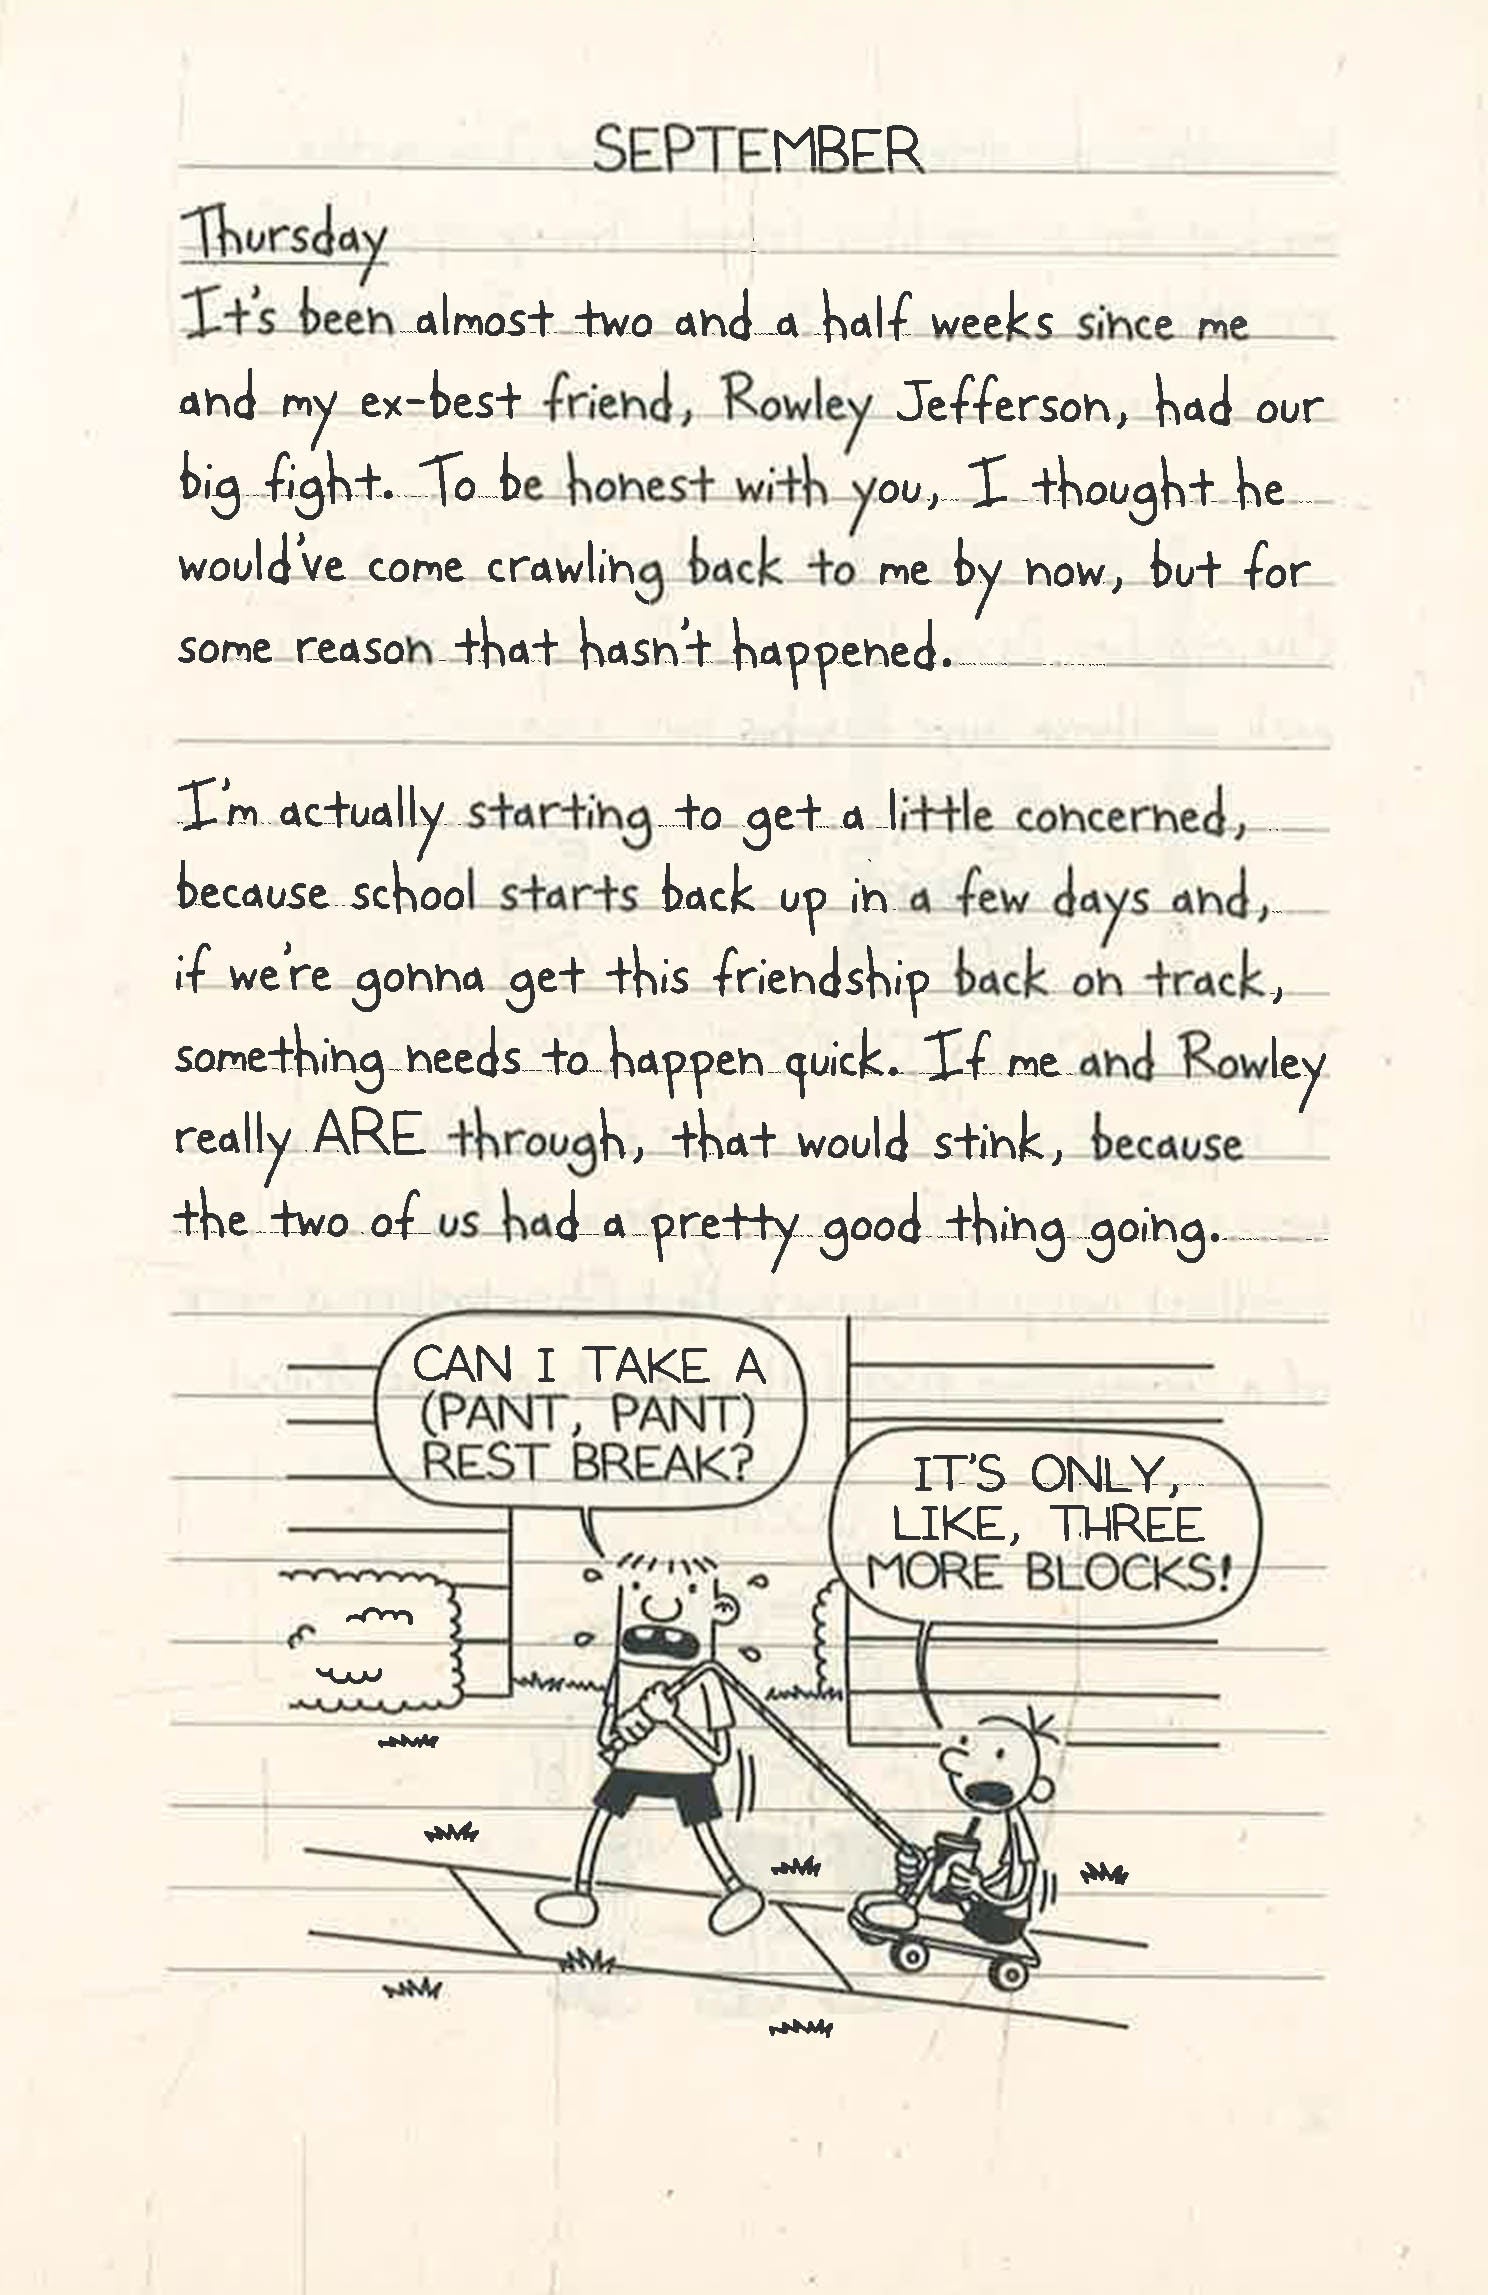 SEPTEMBER
Thursday
It's been almost two and a half weeks since me
and my ex-best friend, Rowley Jefferson, had our
big fight. To be honest with you, I thought he
would've come crawling back to me by now, but for
some reason that hasn't happened.
I'm actually starting to get a little concerned,
because school starts back up in a few days and,
if we're gonna get this friendship back on track,
something needs to happen quick. If me and Rowley
really ARE through, that would stink, because
the two of us had a pretty good thing going.
CAN I TAKE A
(PANT, PANT)
REST BREAK?
IT'S ONLY,
LIKE, THREE
MORE BLOCKS!